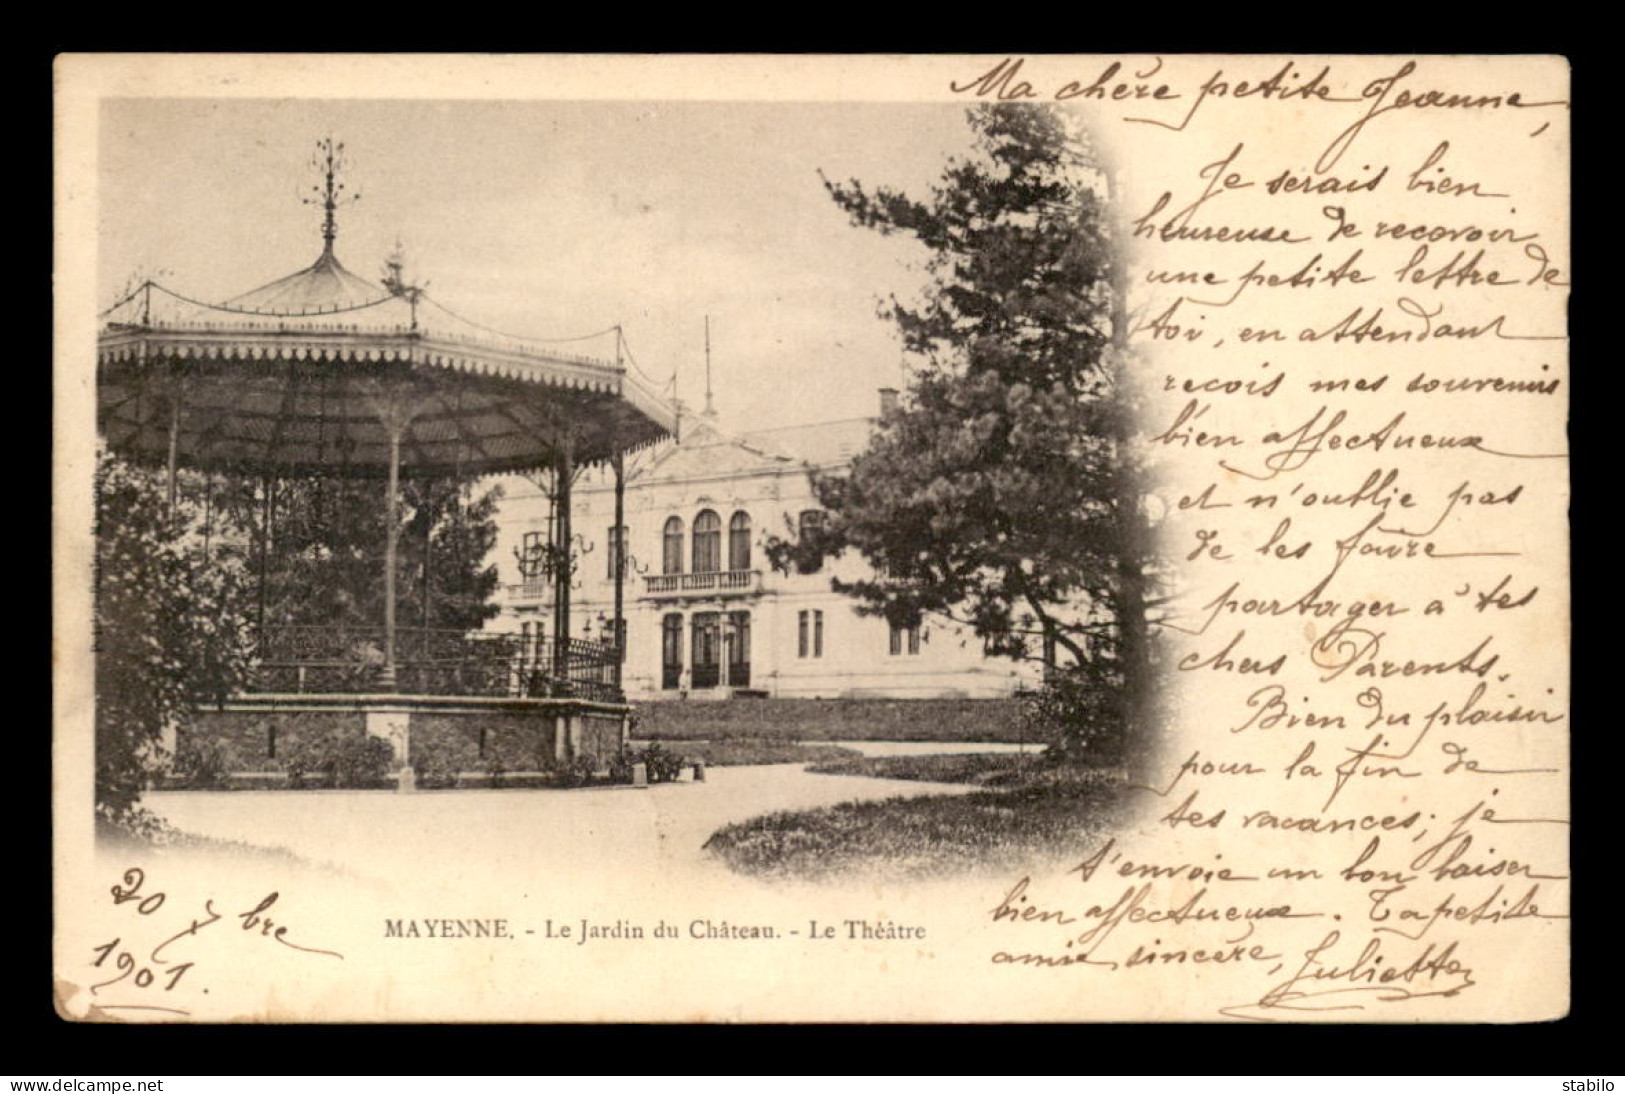 Ma chère petite Jeanne,
Je serais bien
heureuse de recevoir
une petite lettre de
toi, en attendant
reçois mes souvenirs
bien affectueux
et n'oublie pas
de les faire
partager à tes
chers Parents.
Bien du plaisir
pour la fin de
tes vacances; je
t'envoie un bon baiser
bien affectueux. Ta petite
amie sincère, Juliette
20 7bre
1901.
MAYENNE. - Le Jardin du Château. - Le Théâtre
https://www.delcampe.net
stabilo